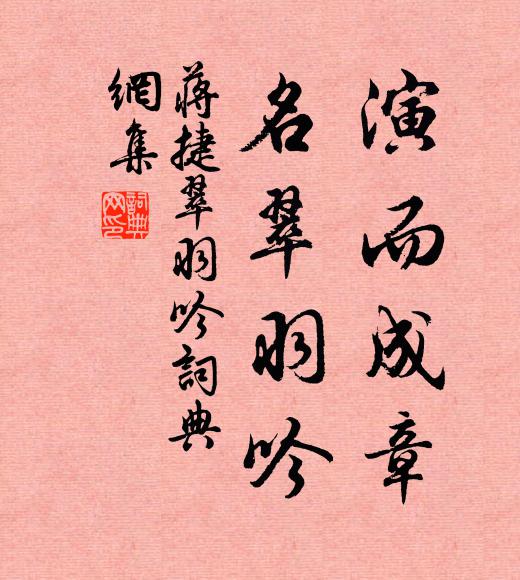 演而成章
名翠羽吟
蔣捷翠羽吟詞典
網集
詞典
网印